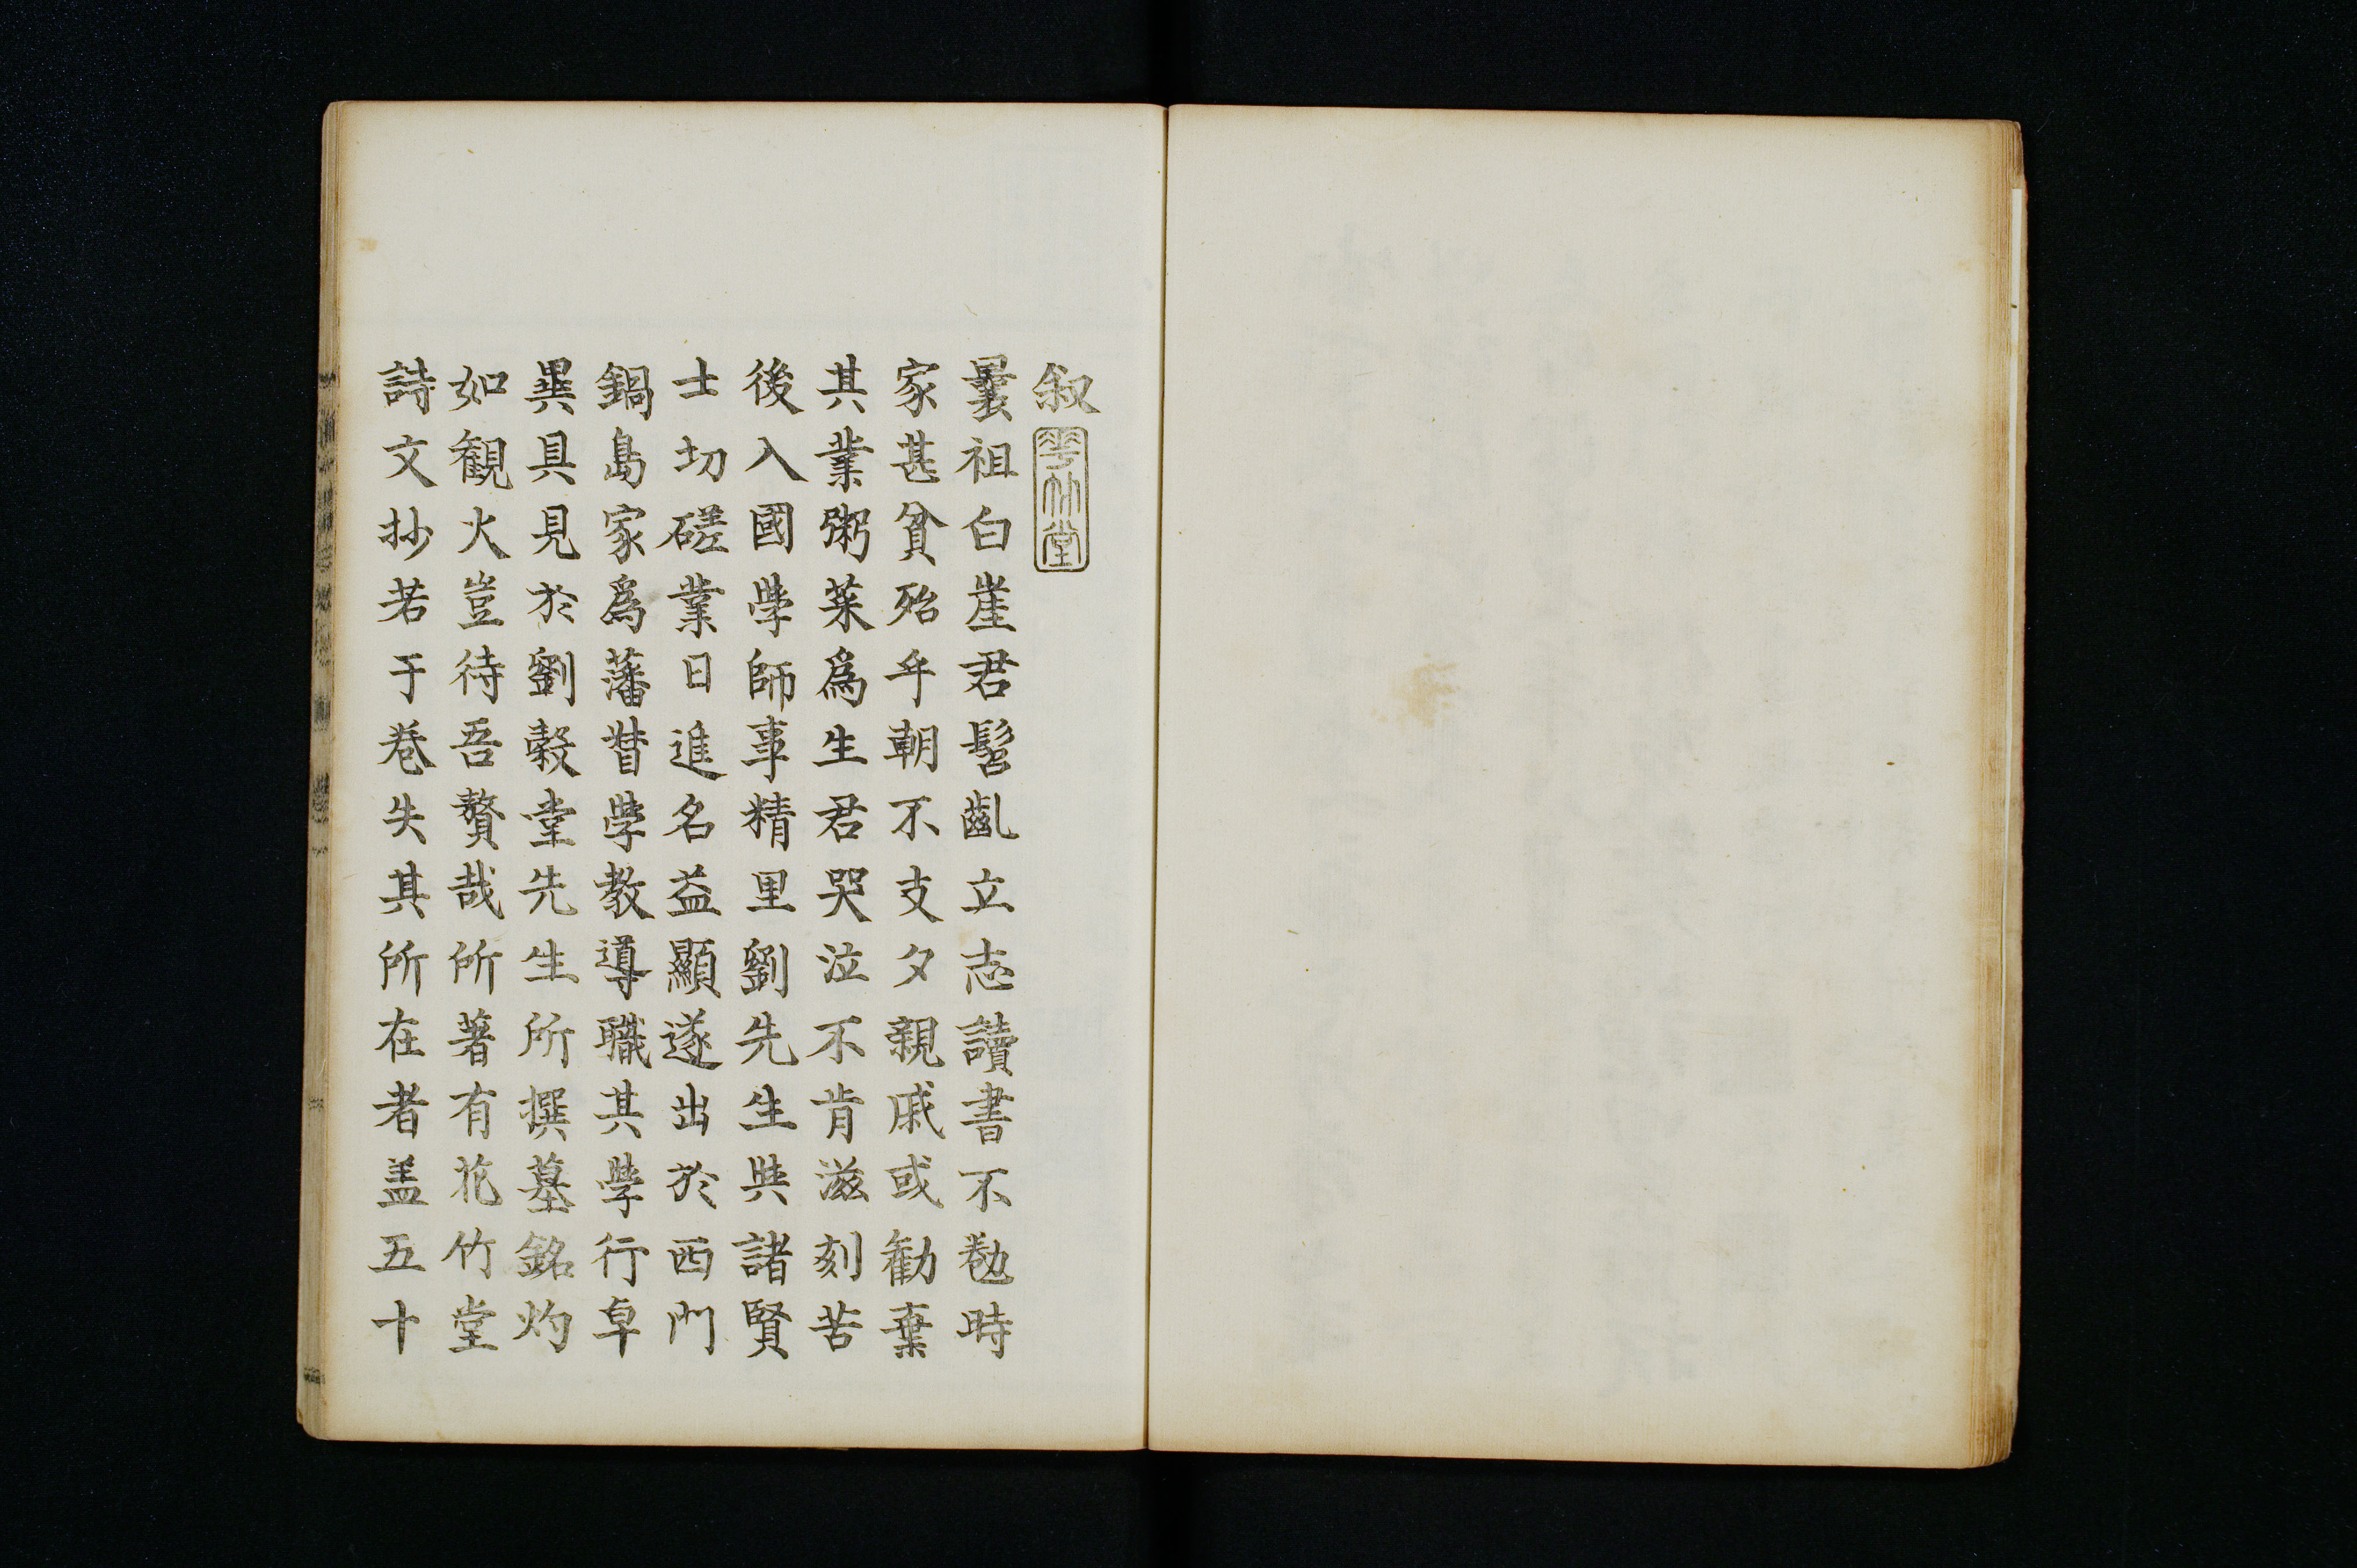 叙
華竹堂
曩祖白崖君髫齓立志讀書不勌時
家甚貧殆乎朝不支夕親戚或勧棄
其業粥菜爲生君哭泣不肯滋刻苦
後入國學師事精里劉先生與諸賢
士切磋業日進名益顯遂出於西門
鍋島家爲藩督學教導職其學行卓
異具見於劉穀堂先生所撰墓銘灼
如観火豈待吾贅哉所著有花竹堂
詩文抄若于巻失其所在者盖五十